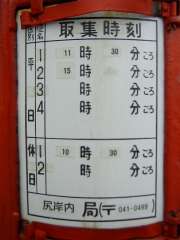 号名 取集時刻
平日 1 11時30分ごろ
2 15時 分ごろ
3 時 分ごろ
4 時 分ごろ
休日 1 10時30分ごろ
2 時 分ごろ
尻岸内 局(〒041-0499)